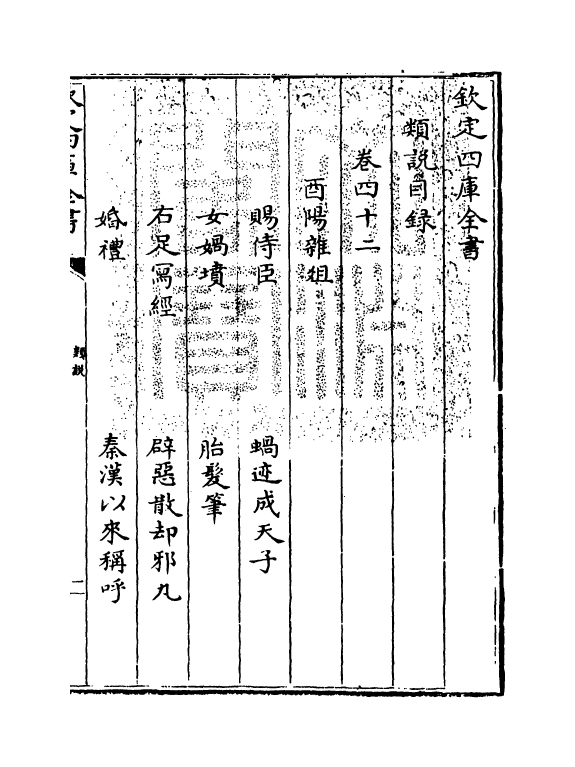 欽定四庫全書
類說目録
卷四十二
酉陽雜俎
賜侍臣 蝸迹成天子
女媧墳 胎髮筆
右足寫經 辟惡散却邪丸
婚禮 秦漢以來稱呼
類説
二